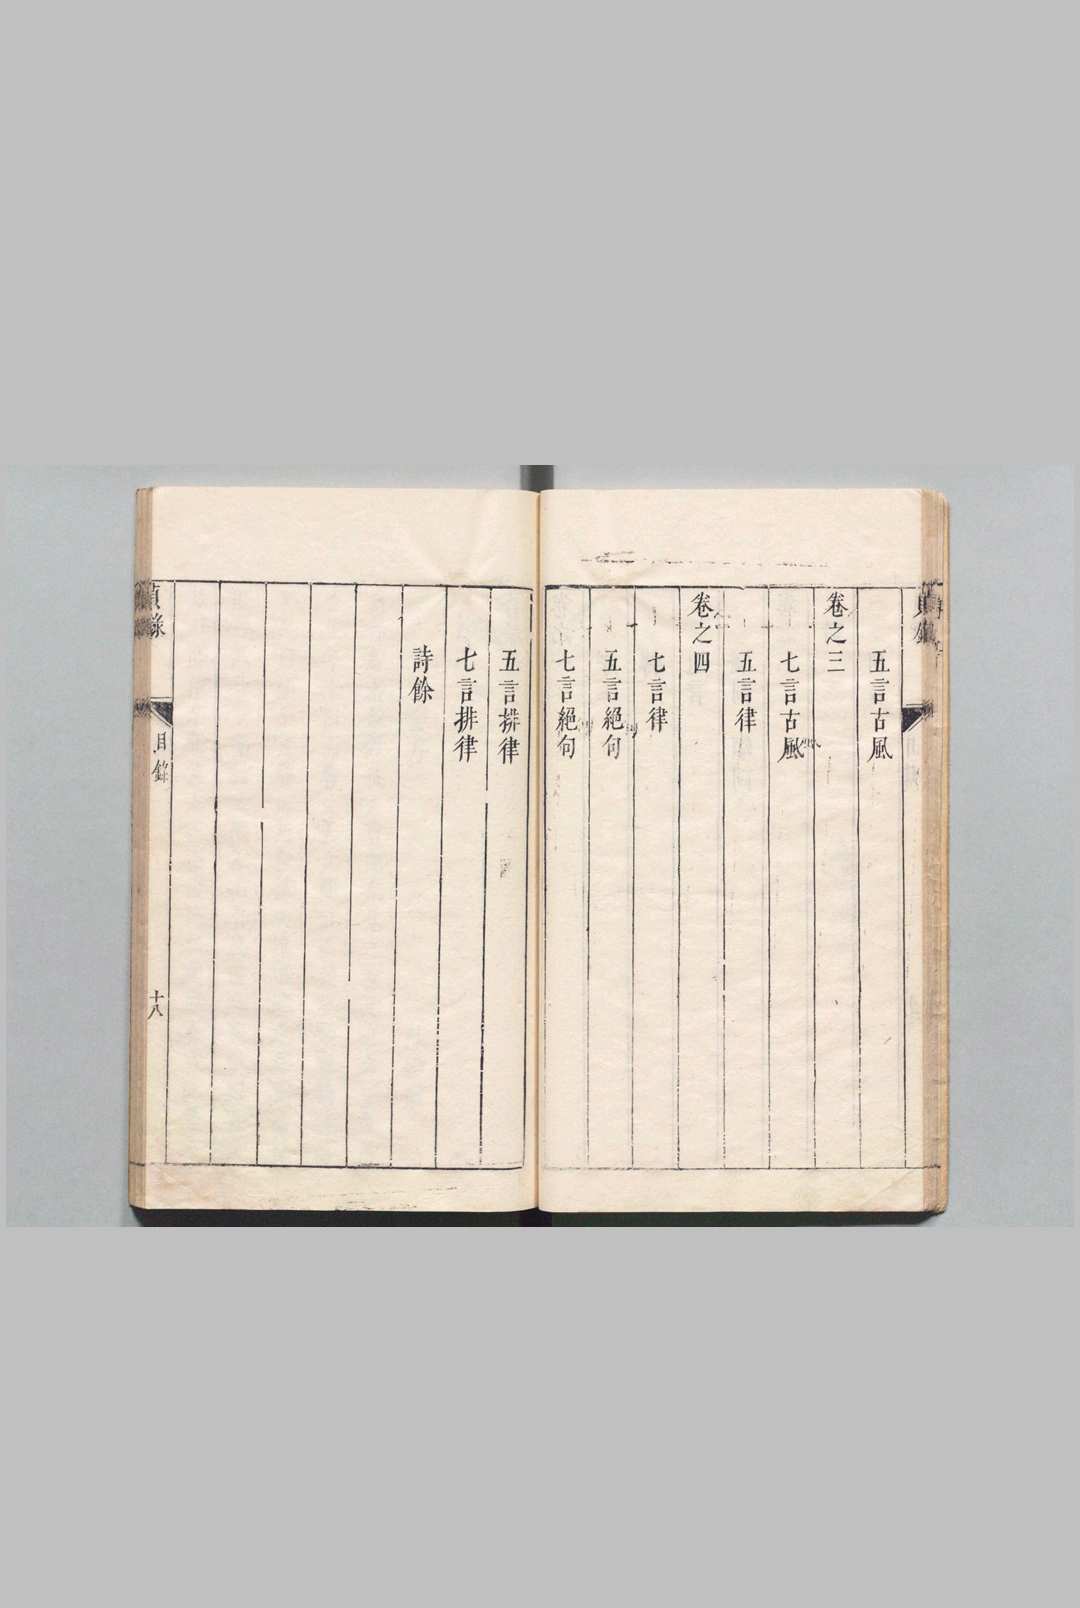 五言古風
卷之三
七言古風
五言律
卷之四
七言律
五言絕句
七言絕句
五言排律
七言排律
詩餘
目錄
十八